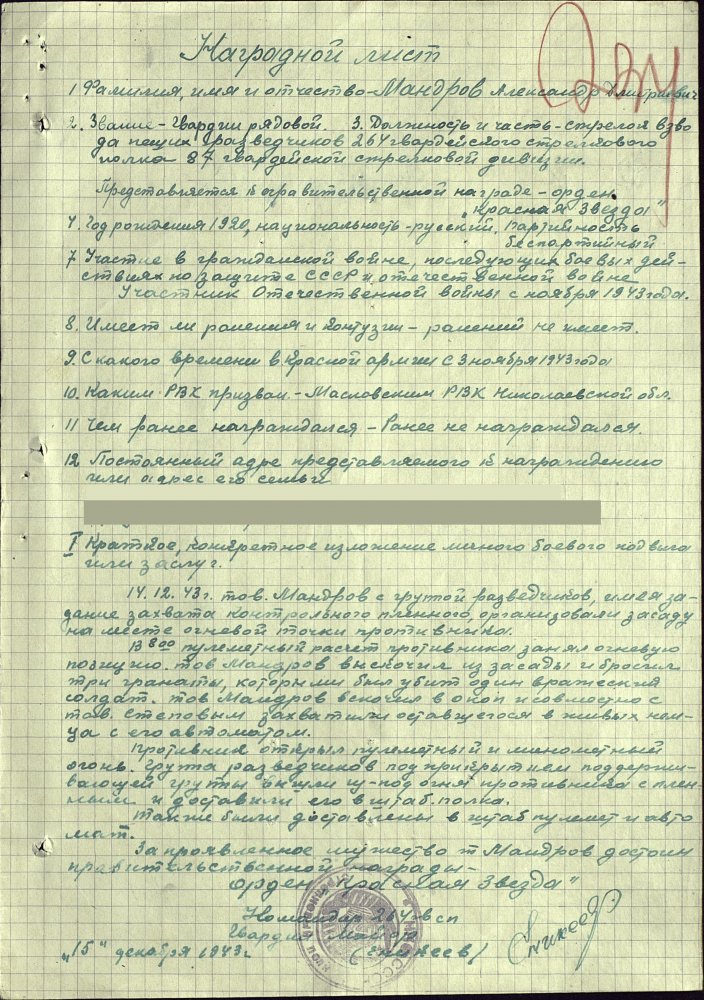 Наградной лист
1 Фамилия, имя и отчество - Мандров Александр Дмитриевич
2. Звание - Гвардии рядовой. 3. Должность и часть - стрелок взво
да пеших разведчиков 264 гвардейского стрелкового
полка 87 гвардейской стрелковой дивизии.
Представляется к правительственной награде - орден
"Красная Звезда"
4. Год рождения 1920, национальность - русский, партийность
беспартийный
7 Участие в гражданской войне, последующих боевых дей-
ствиях по защите СССР и отечественной войне
Участник Отечественной войны с ноября 1943 года.
8. Имеет ли ранения и контузии - ранений не имеет.
9. С какого времени в Красной армии с 3 ноября 1943 года
10. Каким РВК призван - Масловским РВК Николаевской обл.
11 Чем ранее награждался - Ранее не награждался.
12 Постоянный адре представляемого к награждению
или адрес его семьи
I Краткое, конкретное изложение личного боевого подвига
или заслуг.
14.12.43 г. тов. Мандров с группой разведчиков, имея за-
дание захвата контрольного пленного, организовали засаду
на месте огневой точки противника.
В 8 00 пулеметный расчет противника занял огневую
позицию. тов Мандров выскочил из засады и бросил
три гранаты, которыми был убит один вражеский
солдат. тов Мандров вскочил в окоп и совместно с
тов. Степовым захватили оставшегося в живых нем-
ца с его автоматом.
Противник открыл пулеметный и минометный
огонь. Группа разведчиков под прикрытием поддержи-
вающей группы вышли из-под огня противника с плен-
ным и доставили его в штаб полка.
Также были доставлены в штаб пулемет и авто
мат.
За проявленное мужество т Мандров достоин
правительственной награды -
орден "Красная Звезда"
Командир 264 гв сп
Гвардии Майор
(Еникеев)
"15" декабря 1943 г